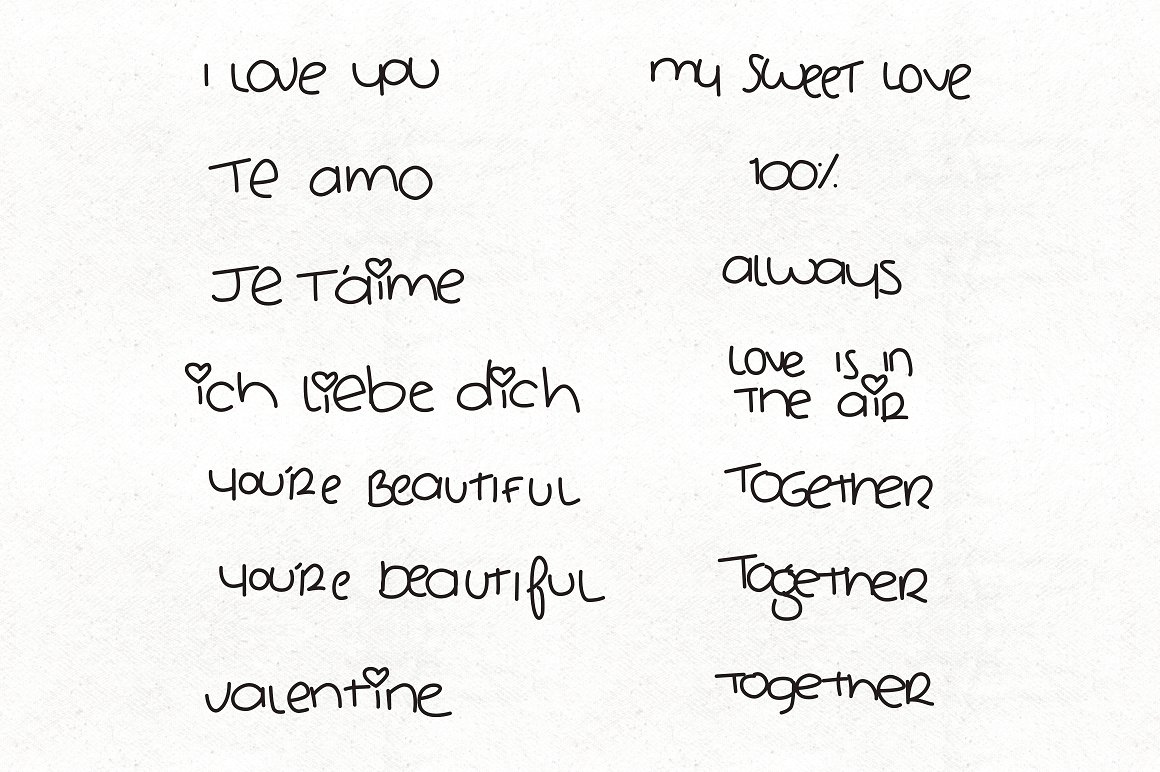 I LOVE YOU
Te amo
Je T'aime
ich liebe dich
YOU'RE BEAUTIFUL
YOU'RE beautiful
valentine
my SWEET LOVE
100%
always
LOVE IS IN
The AIR
TOGETHER
TogeTHER
TogeTHER